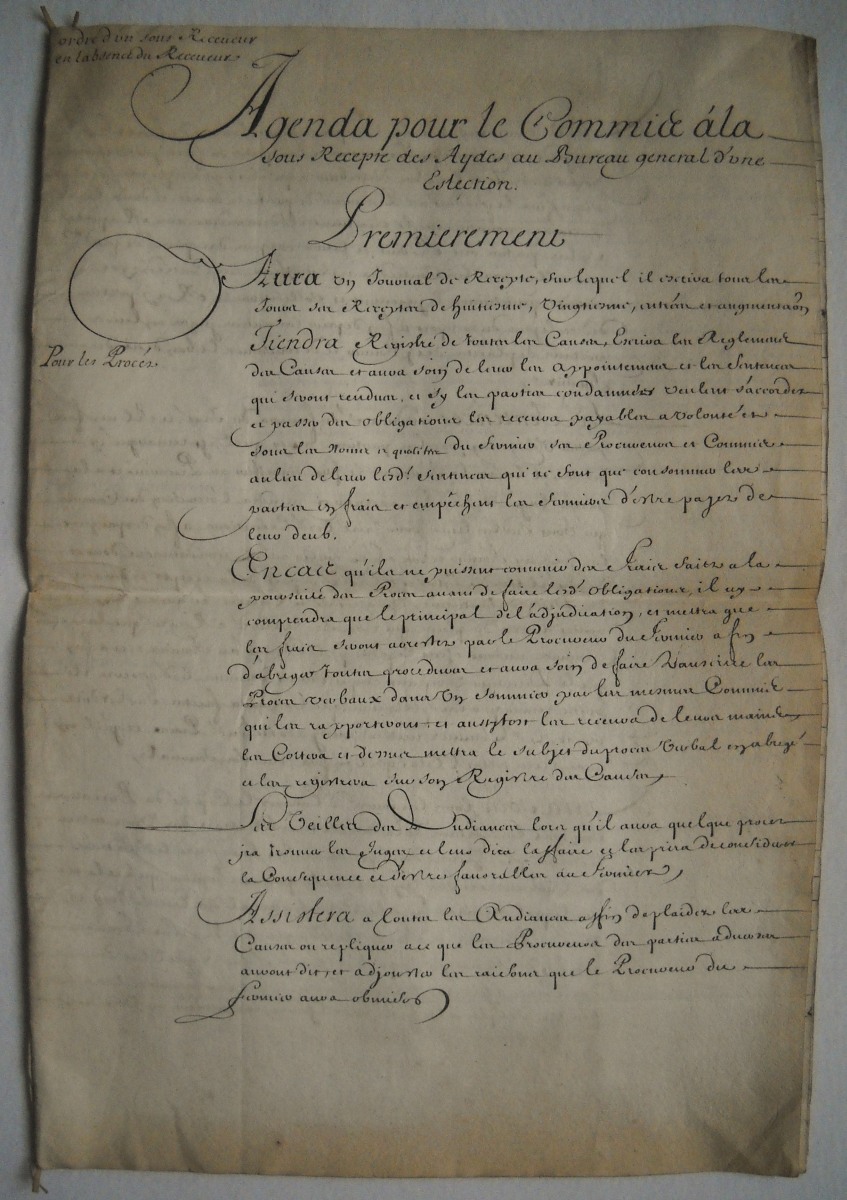 ordre d'un sous Receveur
en l'absence du Receveur
Agenda pour le Commis à la
sous Recepte des Aydes au Bureau general d'une
Eslection.
Premierement
Aura un Journal de Recepte, sur lequel il escrira tous les
Jours ses Receptes de huitiesme, vingtiesme, entrées et augmentaõn
Tiendra Registre de toutes les Causes, Escrira les Reglemens
Pour les Procés
des Causes et aura soin de lever les appointemens et les Sentences
qui seront rendues, et sy les parties condamnées veulent s'accorder
et passer des obligations les recevra payables a volonté et
sous les Noms et qualités du fermier ses Procureurs et Commis
au lieu de lever lesd. sentences qui ne sont que consommer les
parties en frais et empéchent les fermiers d'estre payez de
leur deub.
En cas qu'ils ne puissent convenir des frais faits a la
poursuite des Procés avant de faire lesd. obligations, il n'y
comprendra que le principal de l'adjudication, et mettra que
les frais seront arrestez par le Procureur du fermier afin
d'abreger toutes procedures et aura soin de faire transcrire les
Procés verbaux dans un sommier par les mesmes Commis
qui les rapporteront et aussytost les recevra de leurs mains
les Cottera et dessus mettra le subjet du procés verbal en abregé
et les registrera sur son Registre des Causes
Les Veilles des Audiances lors qu'il aura quelque procés
ira trouver les Juges et leur dira l'affaire et les priera de considerer
la Consequence et d'estre favorables au fermier
Assistera a toutes les Audiances affin de plaider les
Causes ou repliquer a ce que les Procureurs des parties adverses
auront dit, et adjouter les raisons que le Procureur du
fermier aura obmises